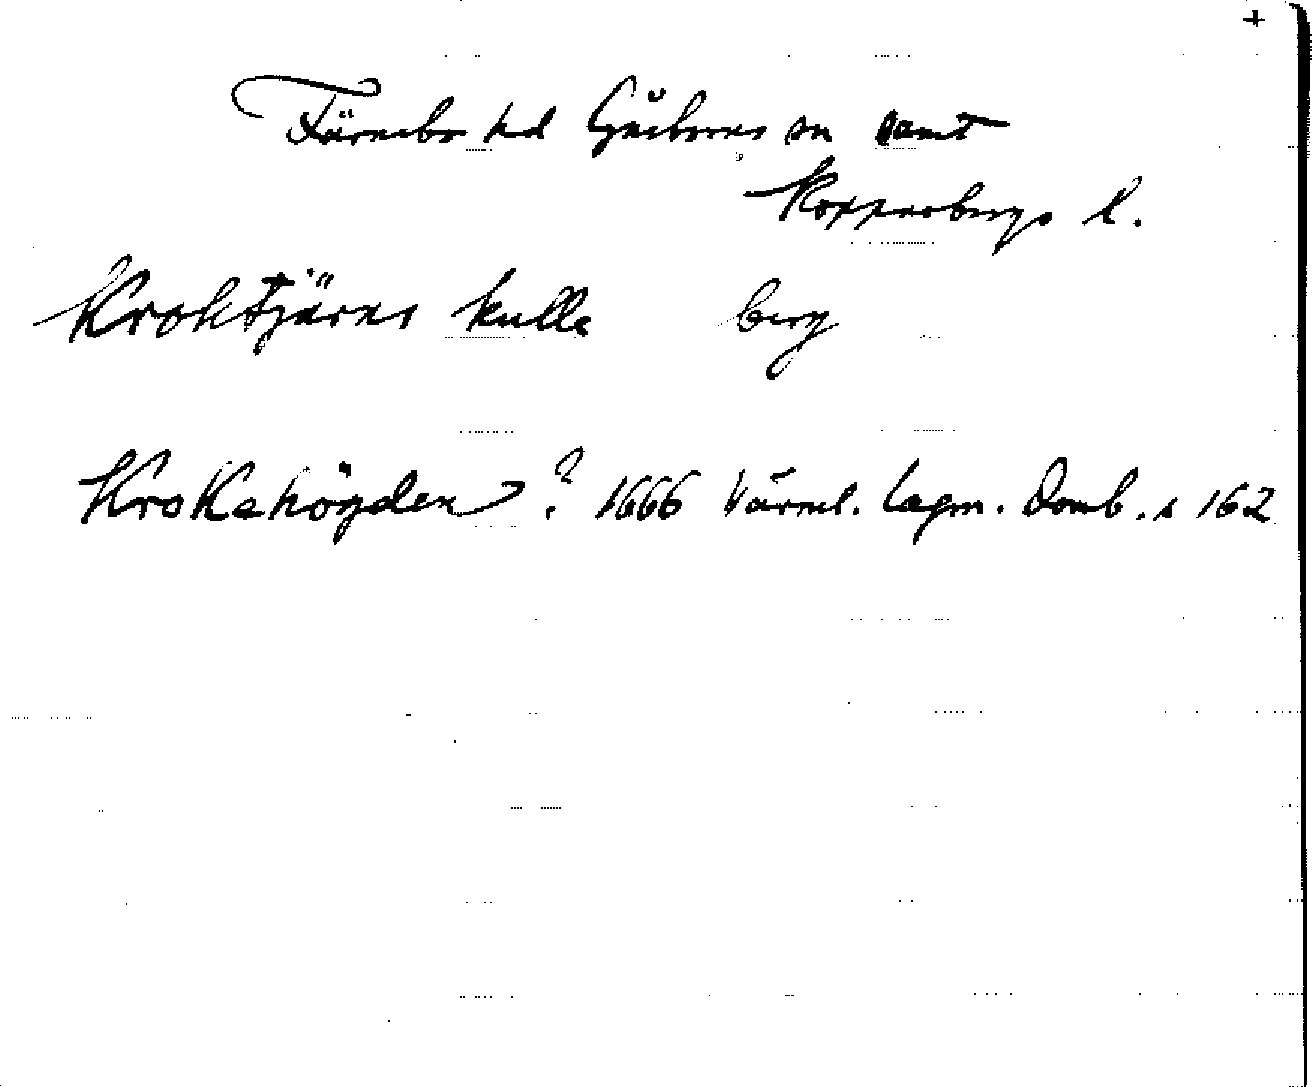 +
Färnebo hd Gåsborns sn samt
Kopparbergs l.
Kroktjärns kulle berg
Krokehöjden ? 1666 Värml. Lagm. Domb. s 162